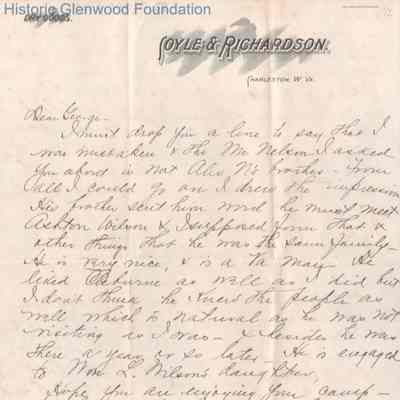 Historic Glenwood Foundation
DRY GOODS.
COYLE & RICHARDSON.
CHARLESTON, W. VA.
Dear George-
I must drop you a line to say that I
was mistaken & the Mr Nelson I asked
you about is not Alex N's brother - From
all I could go on I drew the impression
His brother sent him word he must meet
Ashton Wilson & I supposed from that &
other things that he was the same family-
He is very nice, & is a Va man. He
liked as well as I did but
I dont think he knew the people as
well which is natural as he was not
visiting as I was - & besides he was
there a year or so later. He is engaged
to Wm L. Wilson's daughter,
Hope you are enjoying your camp-